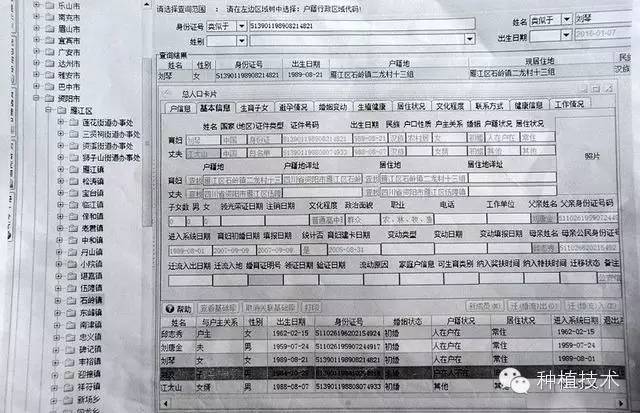 乐山市
南充市
眉山市
宜宾市
广安市
达州市
雅安市
巴中市
资阳市
雁江区
莲花街道办事处
三贤祠街道办事处
资溪街道办事处
狮子山街道办事处
雁江镇
松涛镇
宝台镇
临江镇
保和镇
老君镇
中和镇
丹山镇
小院镇
堪嘉镇
伍隍镇
石岭镇
东峰镇
南津镇
忠义镇
碑记镇
丰裕镇
迎接镇
祥符镇
新场乡
请选择查询范围 : 请在左边区域树中选择：户籍行政区域代码！
身份证号 类似于 513901198908214821 姓名 类似于 刘琴
性别 出生日期 2016-01-07
查询结果
姓名 性别 身份证号 出生日期 户籍地 现居住地
刘琴 女 513901198908214821 1989-08-21 雁江区石岭镇二龙村十三组 雁江区石岭镇二龙村十三组
总人口卡片
户信息 基本信息 生育子女 避孕情况 婚姻变动 生殖健康 居住状况 文化程度 联系方式 健康信息 工作情况
姓名 国家(地区) 证件类型 证件号码 出生日期 民族 户口性质 户主关系 婚姻 户籍状况 居住状况
育妇 刘琴 中国 身份证 513901198908214821 1989-08-21 汉族 农村居民 女 初婚 人在户在 常住
丈夫 江太山 中国 汉族 女婿 初婚 其他 其他
照片
户籍地 户籍地详址 居住地 居住地详址
育妇 雁江区石岭镇二龙村十三组 四川省资阳市雁江区石岭 雁江区石岭镇二龙村十三组
丈夫 四川省资阳市雁江区伍隍镇
子女数 男 女 领光荣证日期 注销日期 文化程度 政治面貌 职业 电话 工作单位 父亲姓名 父亲身份证号码
0 0 0 普通高中 群众 刘唐金
进入系统日期 育妇初婚日期 填报日期 统计否 育妇建卡日期 变动类型 变动日期 变动填报日期 母亲姓名 母亲公民身份证号
1989-08-01 2007-09-09 2007-09-09 是 邱志秀
迁流入出日期 迁流入出地 婚育证明号 领证日期 验证日期 流动原因 家庭户信息 可生育类别 纳入奖扶时间 纳入特扶时间 迁移状态 备注
帮助 查看基础库 取消关联基础库 打印
姓名 与户主关系 性别 出生日期 身份证号 婚姻状态 户籍状况 居住状况 进入系统日期
邱志秀 户主 女 1962-02-15 511026196202154924 初婚 人在户在 常住 1962-02-15
刘唐金 夫 男 1959-07-24 初婚 人在户在 常住 1959-07-24
刘琴 女 女 1989-08-21 513901198908214821 初婚 人在户在 常住 1989-08-01
江太山 女婿 男 1988-08-07 初婚 其他 其他 1988-08-07
种植技术